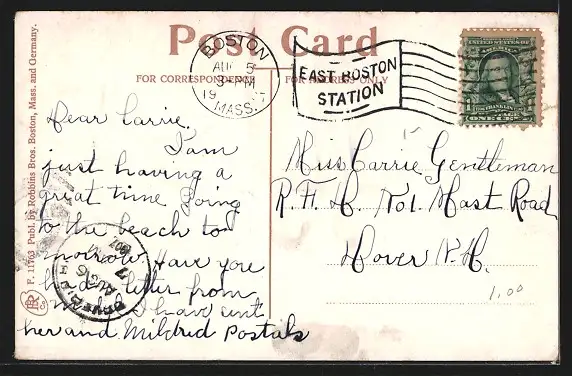 Post Card
FOR CORRESPONDENCE
FOR ADDRESS ONLY
BOSTON
AUG 5
3-PM
19 7
MASS.
EAST BOSTON
STATION
UNITED STATES OF AMERICA
FRANKLIN
ONE CENT
F. 11763 Publ. by Robbins Bros. Boston, Mass. and Germany.
Dear Carrie.
I am
just having a
great time Going
to the beach to
morrow. Have you
had letter from
I have sent
her and Mildred Postals
Miss Carrie Gentleman
R.F.D. No1. Mast Road
Dover N.H.
1.00
DOVER, N.H.
AUG 6
7
1907